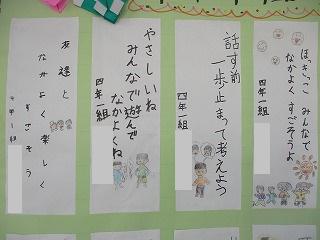 ほっきっこ みんなで
なかよく すごそうよ
四年一組
話す前
一歩止まって考えよう
四年一組
やさしいね
みんなで遊んで
なかよくね
四年一組
友達と
なかよく楽しく
すごそう